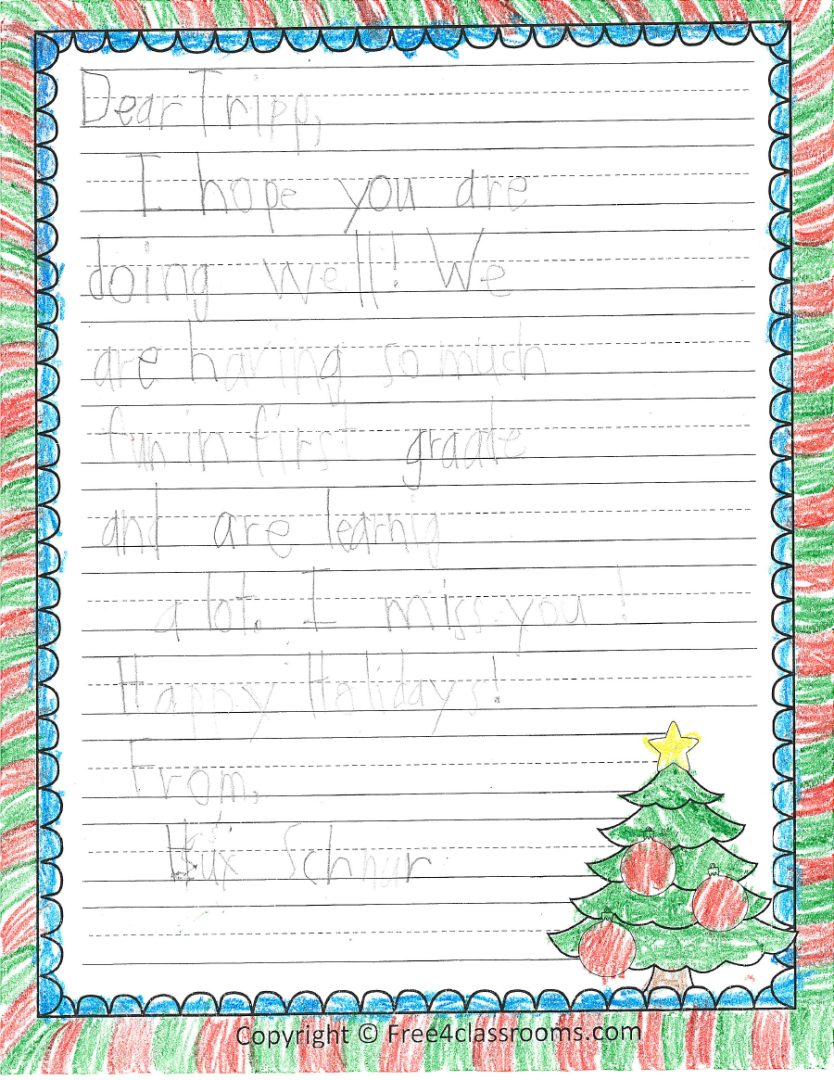 Dear Tripp,
I hope you are
doing well! We
are having so much
fun in first grade
and are learnig
a lot. I miss you!
Happy Holidays!
From,
Hux Schnur
Copyright © Free4classrooms.com